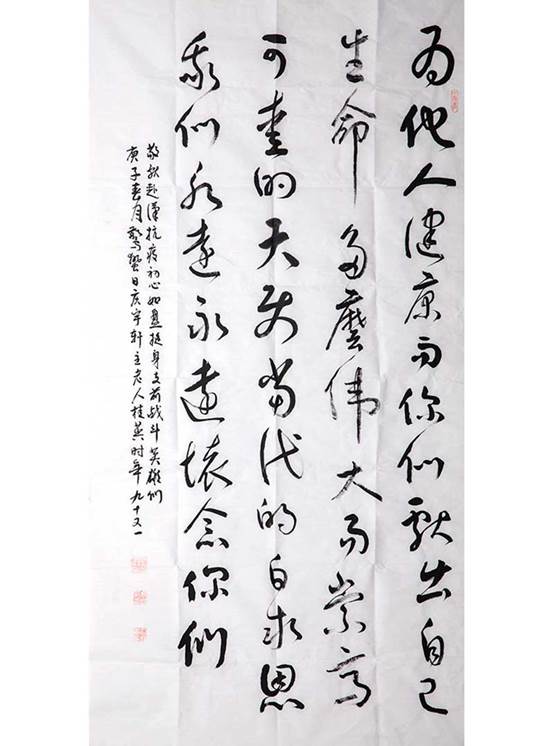 为他人健康而你们献出自己
生命多麼伟大而崇高
可爱的天使當代的白求恩
我们永遠永遠懷念你们
敬献赴漢抗疫初心如磐挺身支前战斗英雄们
庚子春月驚蟄日庆宇轩主老人桂英时年九十又一